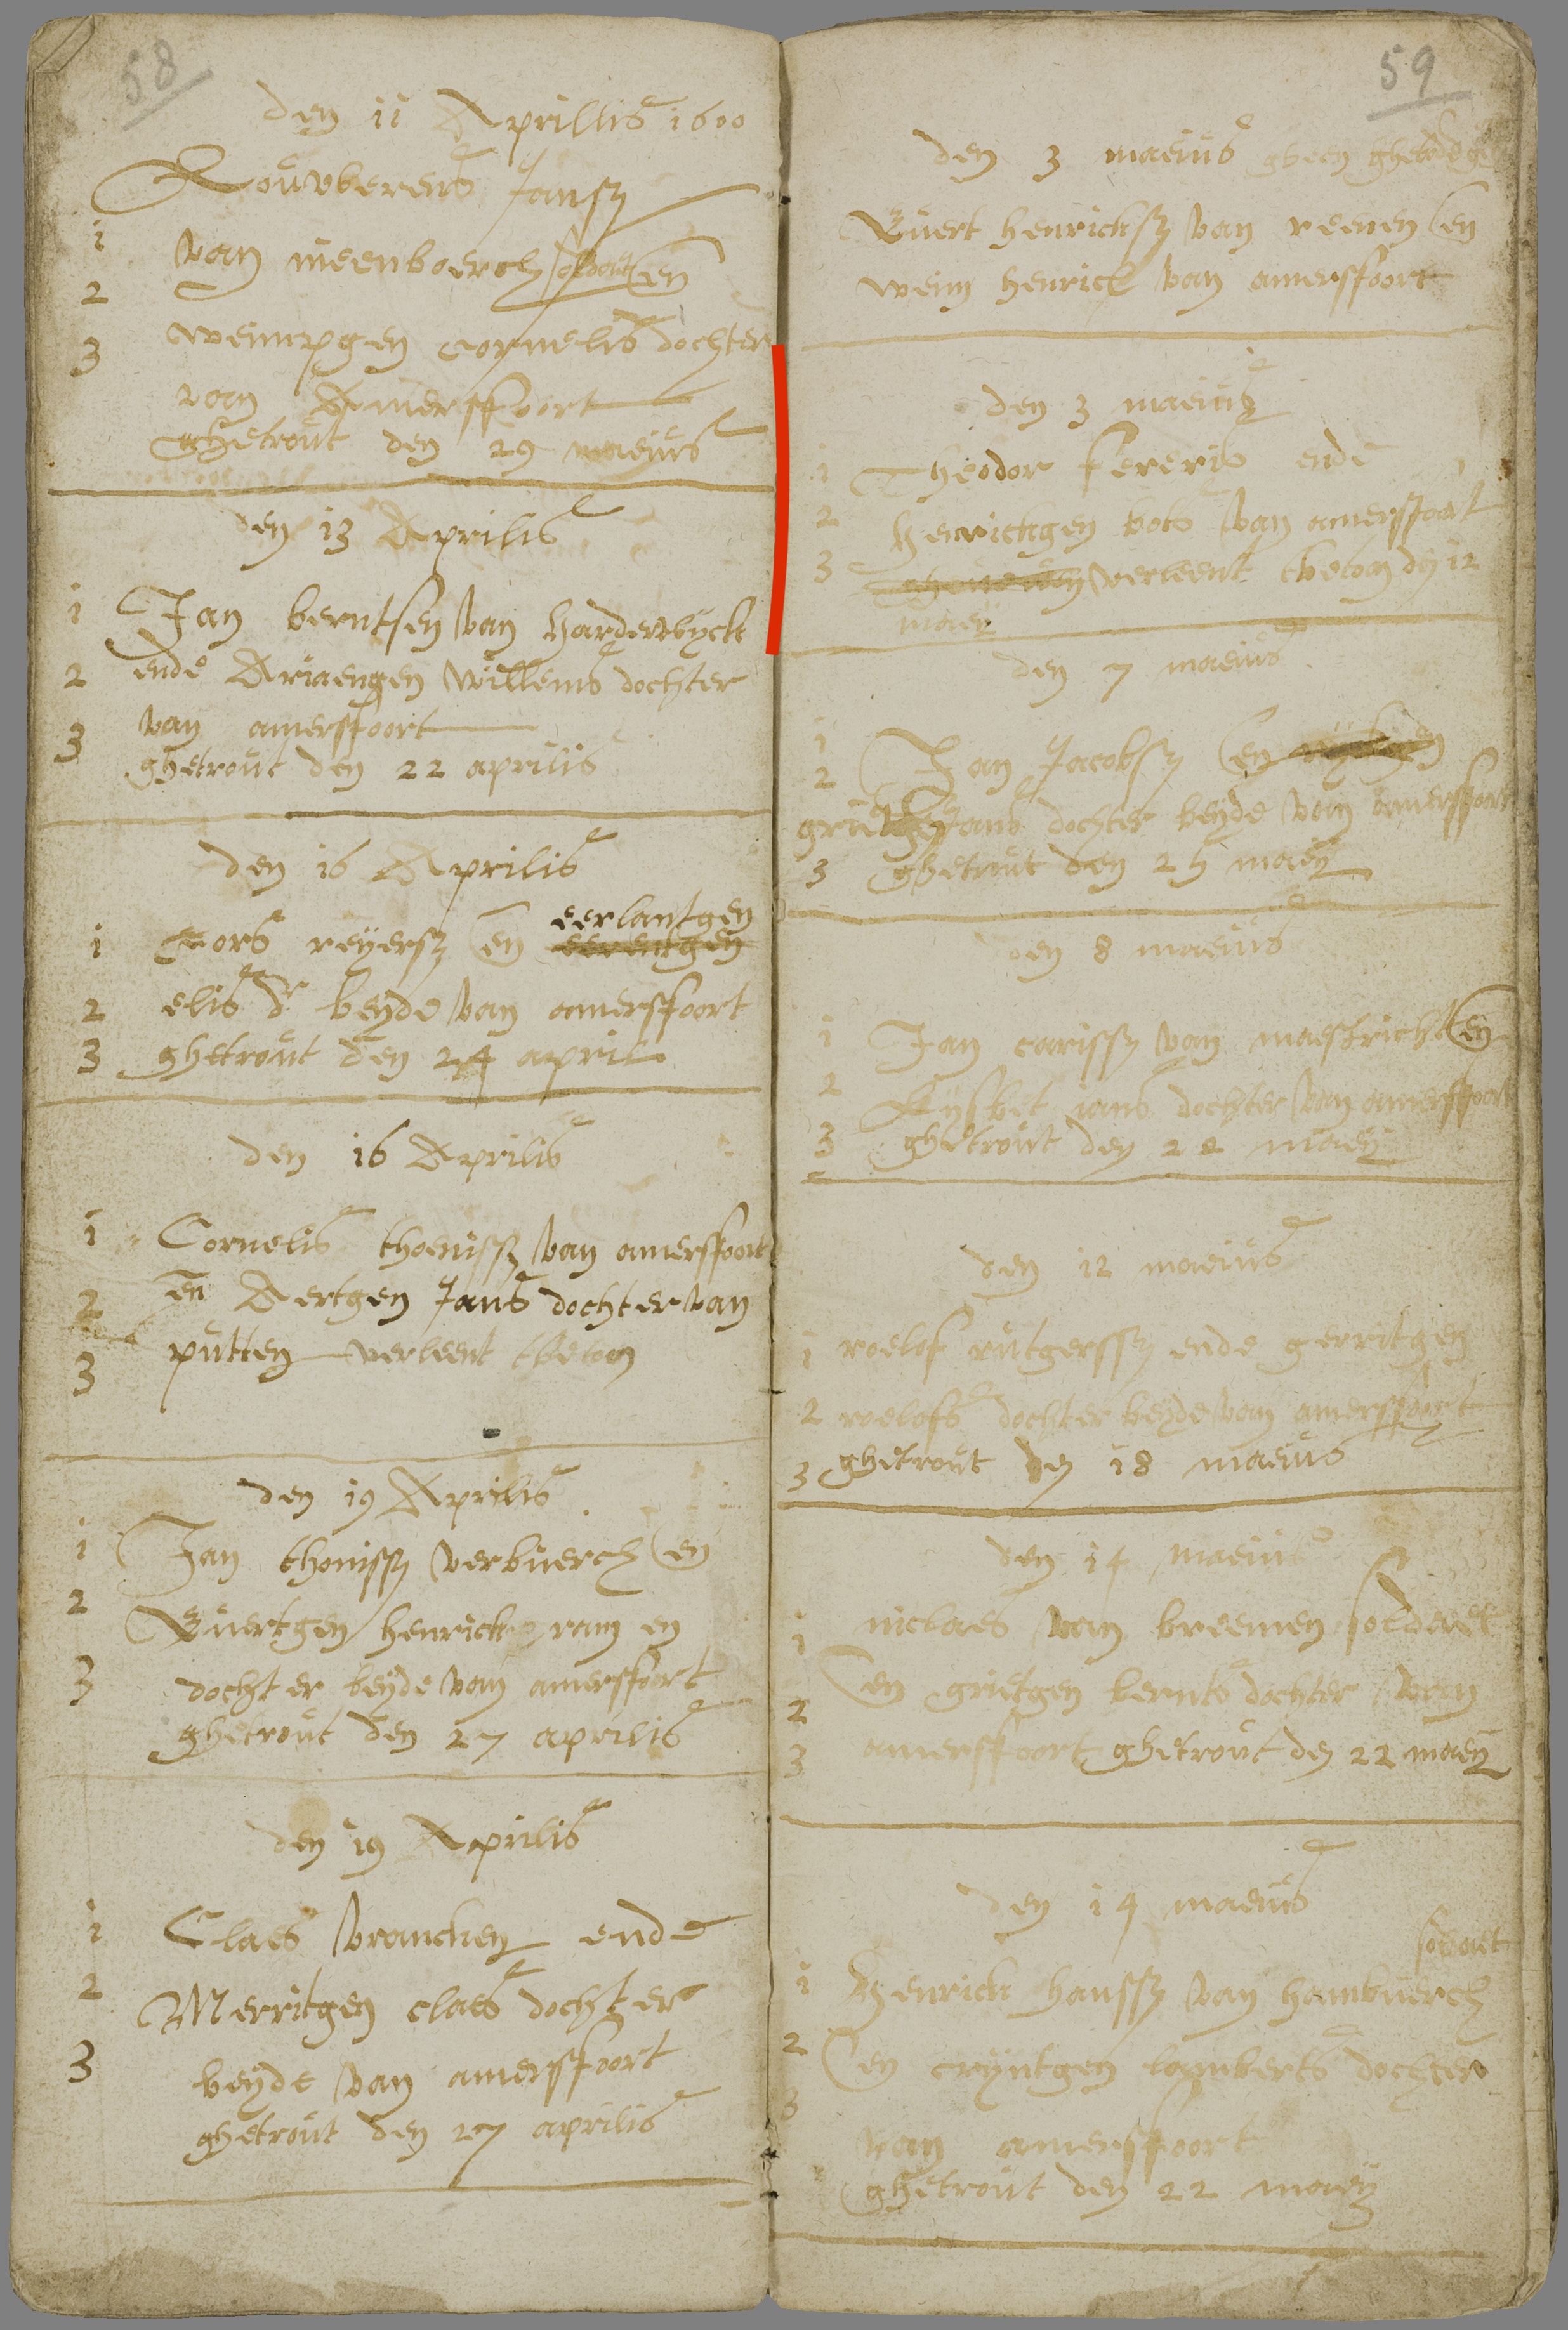 58
den 11 Aprillis 1600
Rouvberens Jansz
1 van meenboerch soldaet en
2
3 weimpgen cornelis dochter
van Amersffoort
ghetrout den 29 maeius
den 13 Aprilis
1 Jan berntsen van harderwyck
2 ende Ariaengen willems dochter
3 van amersffoort
ghetrout den 22 aprilis
den 16 Aprilis
eerlantgen
1 Cors reyersz en eerentgen
2 elis dr beyde van amersffoort
3 ghetrout den 24 april
den 16 Aprilis
1 Cornelis thoenissz van amersffoort
2 en Aertgen Jans dochter van
3 putten verleent thetoon
den 19 Aprilis
1 Jan thonissz verbuerch en
2 Evertgen henrick ram en
3 dochter beyde van amersffoort
ghetrout den 27 aprilis
den 19 Aprilis
1 Claes vrancken ende
2 Merritgen claes dochter
3 beyde van amersffoort
ghetrout den 27 aprilis
59
den 3 maeius gheen
Evert henricksz van reenen en
weim henrick van amersffoort
den 3 maeius
1 Theodor fereris ende
2 henrickgen bots van amersffoort
3 verleent thetoon den 12
maey
den 7 maeius
1
2 Jan Jacobsz en
grietgen Jans dochter beyde van amersffoort
3 ghetrout den 25 maey
den 8 maeius
1 Jan carissz van maestricht en
2 Lysbet jans dochter van amersffoort
3 ghetrout den 22 maey
den 12 maeius
1 roelof rutgerssz ende gerritgen
2 roelofs dochter beyde van amersffoort
3 ghetrout den 18 maeius
den 14 maeius
1 niclaes van breemen soldaet
2 en grietgen bernts dochter van
3 amersffoort ghetrout den 22 maey
den 14 maeius
soldaet
1 Henrick hanssz van hambuerch
2 en tryntgen lamberts dochter
3
van amersffoort
ghetrout den 22 maey